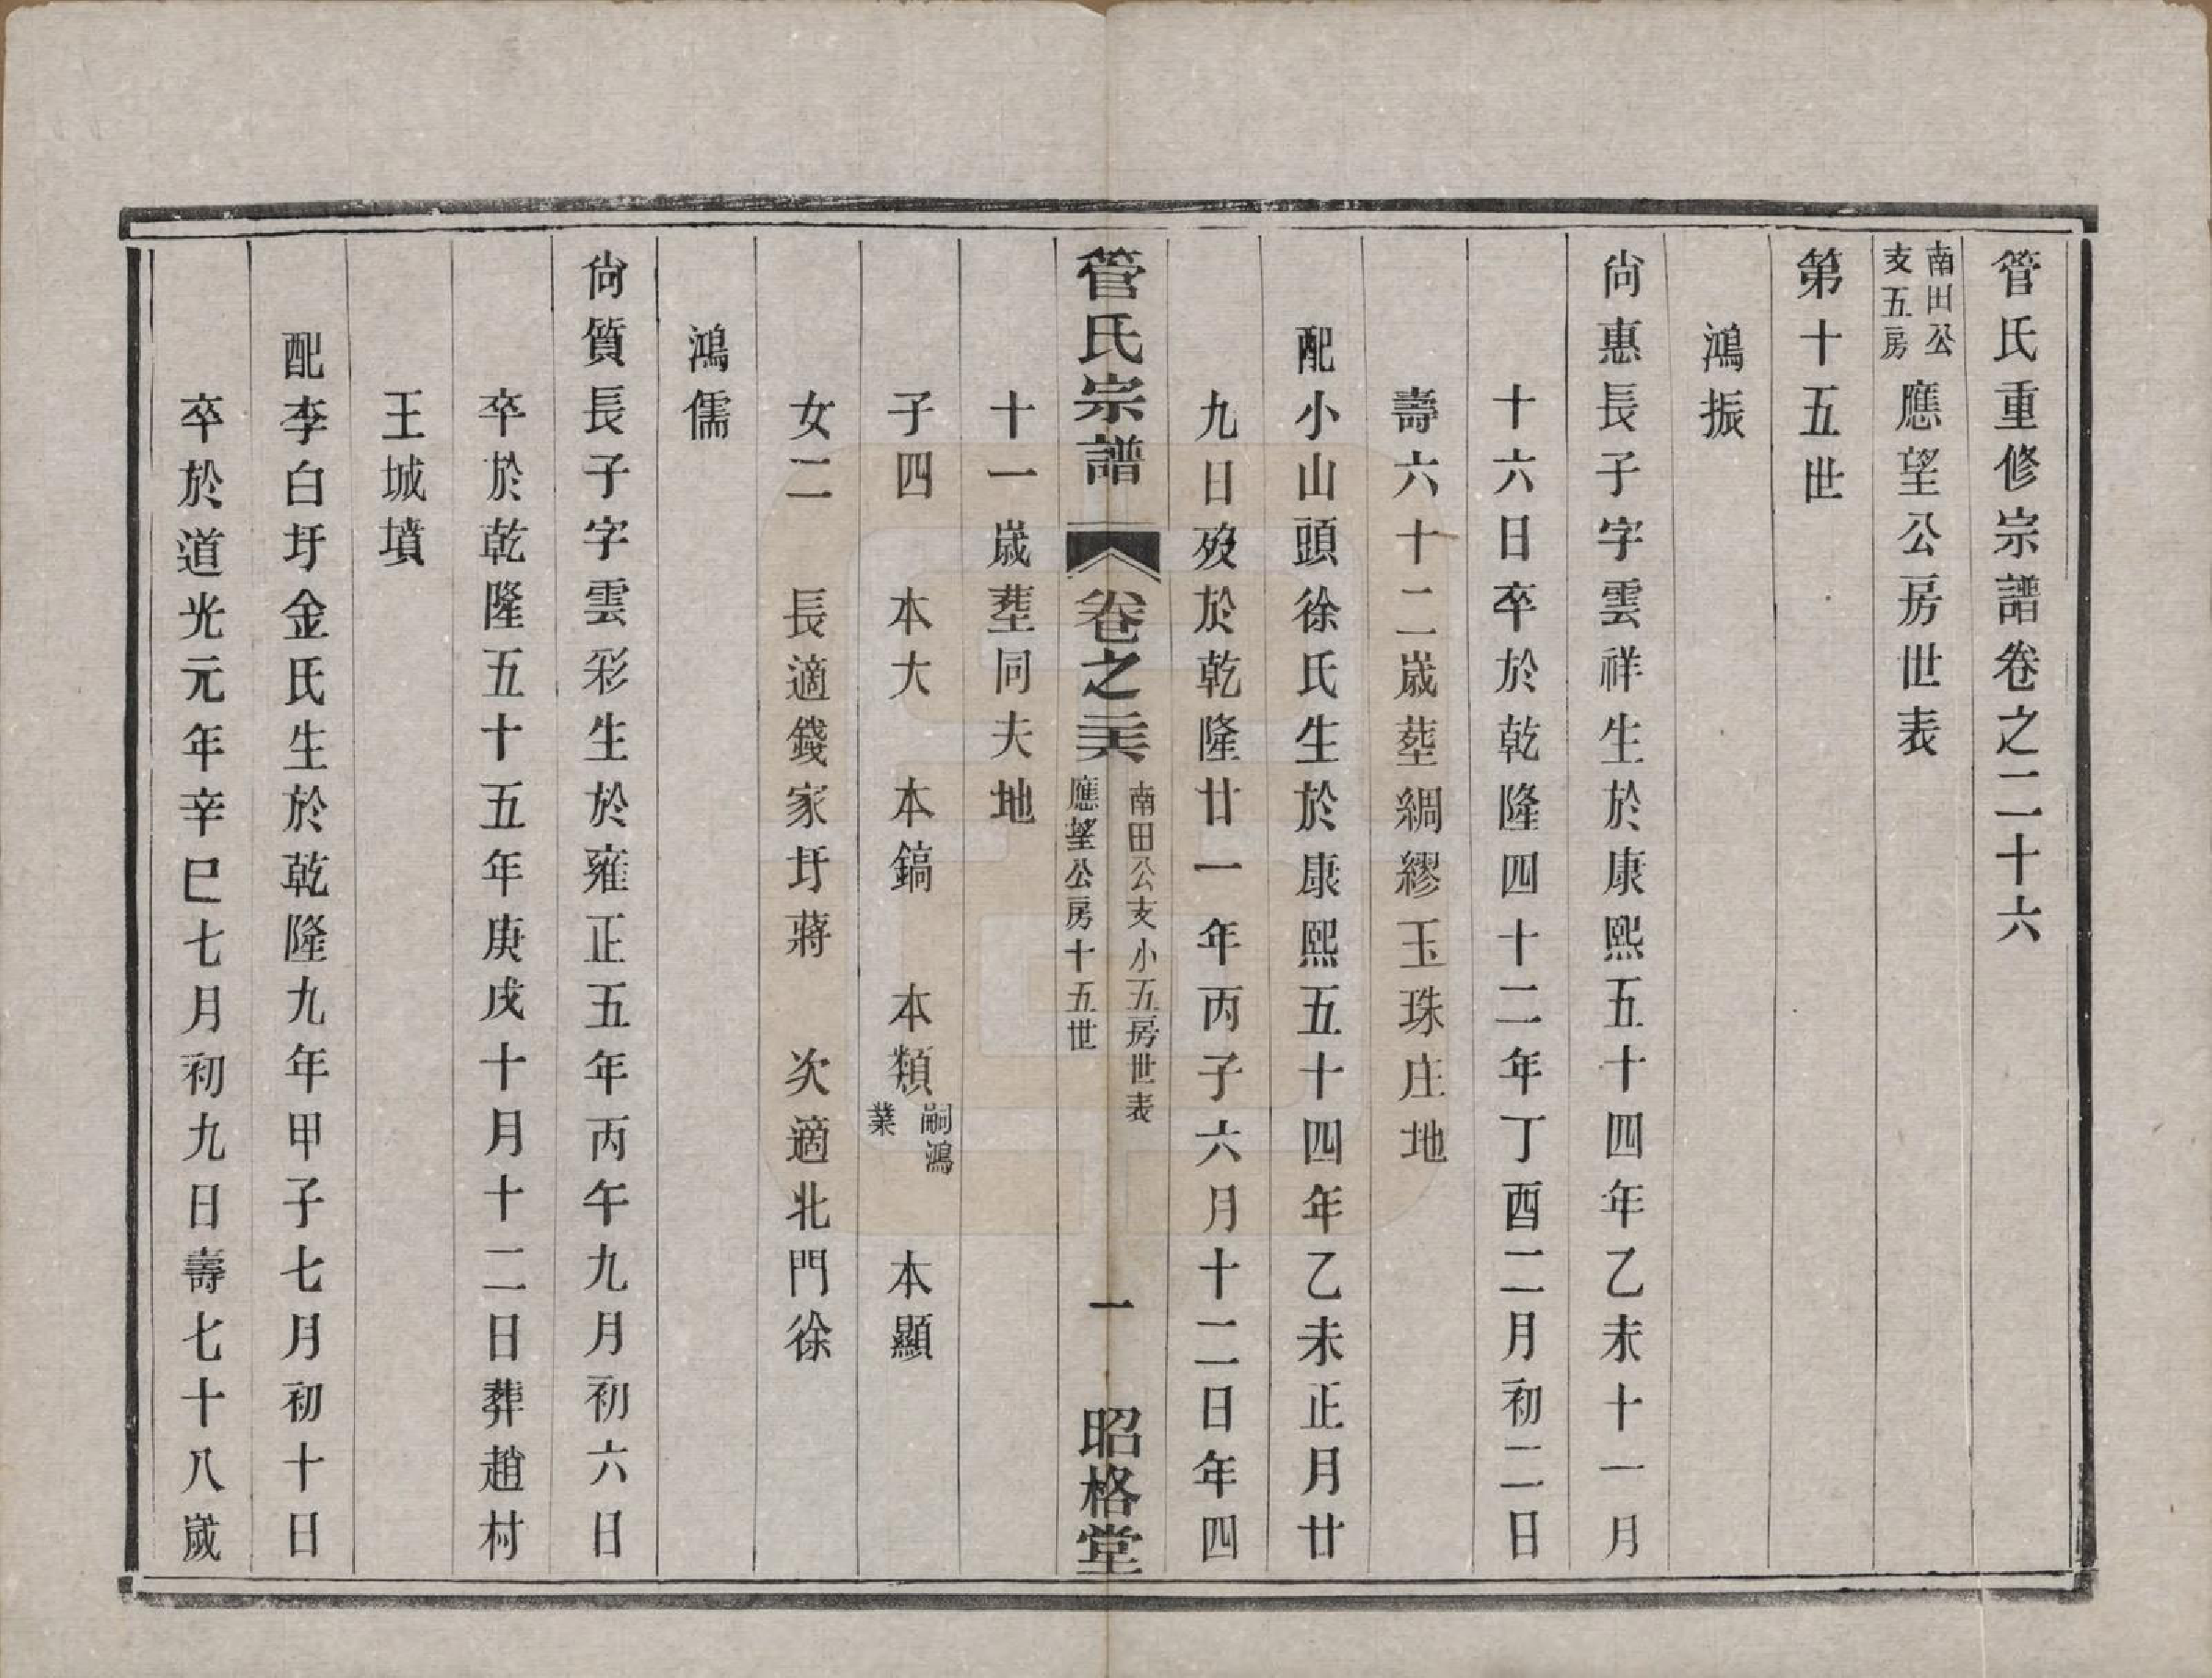 管氏重修宗譜卷之二十六
南田公支五房應望公房世表
第十五世
鴻振
尙惠長子字雲祥生於康熙五十四年乙未十一月
十六日卒於乾隆四十二年丁酉二月初二日
壽六十二歲塟綢繆玉珠庄地
配小山頭徐氏生於康熙五十四年乙未正月廿
九日歿於乾隆廿一年丙子六月十二日年四
管氏宗譜 卷之二十六 南田公支小五房世表 應望公房十五世 一 昭格堂
十一歲塟同夫地
子四 本大 本鎬 本類嗣鴻業 本顯
女二 長適錢家圩蔣 次適北門徐
鴻儒
尙質長子字雲彩生於雍正五年丙午九月初六日
卒於乾隆五十五年庚戌十月十二日葬趙村
王城墳
配李白圩金氏生於乾隆九年甲子七月初十日
卒於道光元年辛巳七月初九日壽七十八歲